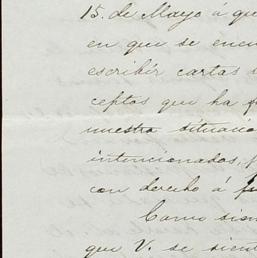 15. de Mayo á qu
en que se encu
escribir cartas
ceptos que ha
nuestra situac
intencionados,
con derecho á
Como
que V. se sien